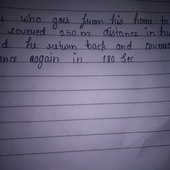 who goes from his home to
covered 250 m distance in
he return back and covered
again in 180 sec